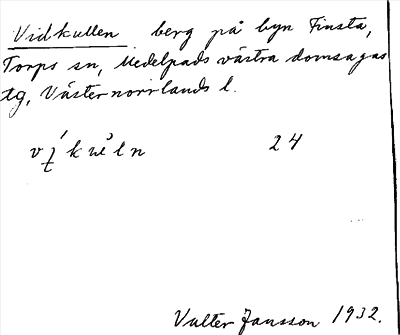 Vidkullen berg på byn Finsta,
Torps sn, Medelpads västra domsagas
tg, Västernorrlands l.
24
Valter Jansson 1932.